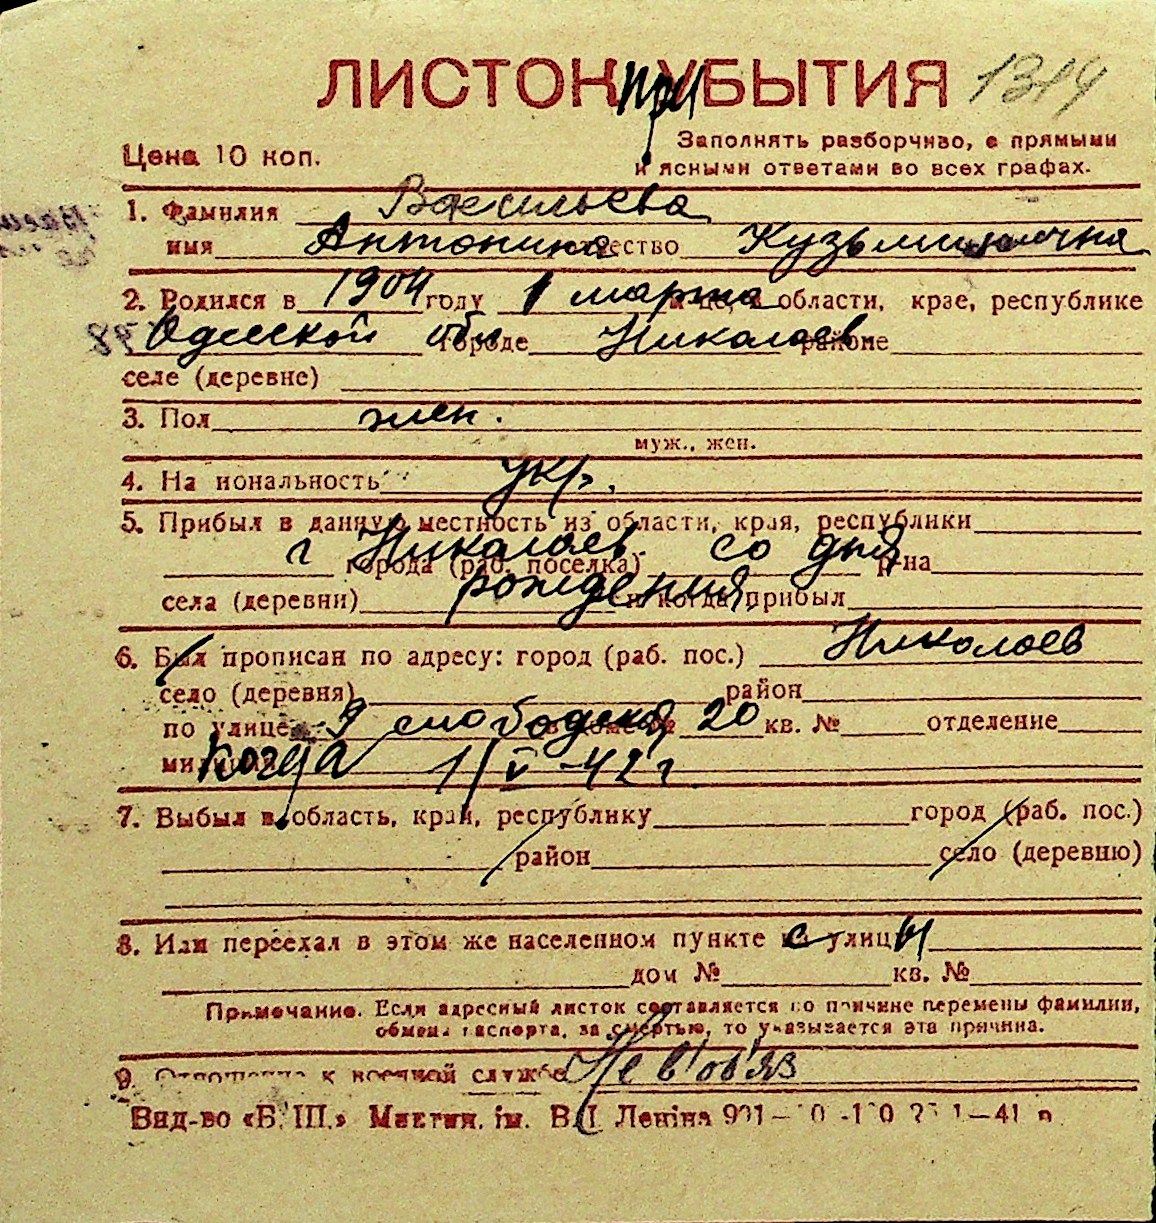 ЛИСТОК при УБЫТИЯ 1314
Цена 10 коп.
Заполнять разборчиво, с прямыми
и ясными ответами во всех графах.
1. Фамилия Васильева
имя Антонина отчество Кузьминична
2. Родился в 1904 году 1 марта м-це, в области, крае, республике
Одесской обл городе Николаев районе
селе (деревне)
3. Пол жен.
муж., жен.
4. Национальность укр.
5. Прибыл в данную местность из области, края, республики
г Николаев со дня
города (раб. поселка) р-на
рождения
села (деревни) и когда прибыл
6. Был прописан по адресу: город (раб. пос.) Николаев
село (деревня) район
по улице 9 слободская в доме № 20 кв. № отделение
милиции когда 1/V-42 г.
7. Выбыл в область, край, республику город (раб. пос.)
район село (деревню)
8. Или переехал в этом же населенном пункте с улицы
дом № кв. №
Примечание. Если адресный листок составляется по причине перемены фамилии,
обмена паспорта, за смертью, то указывается эта причина.
9. Отношение к военной службе Не в'об'яз
Вид-во «Б. Ш.» Миктип. ім. В. І. Леніна